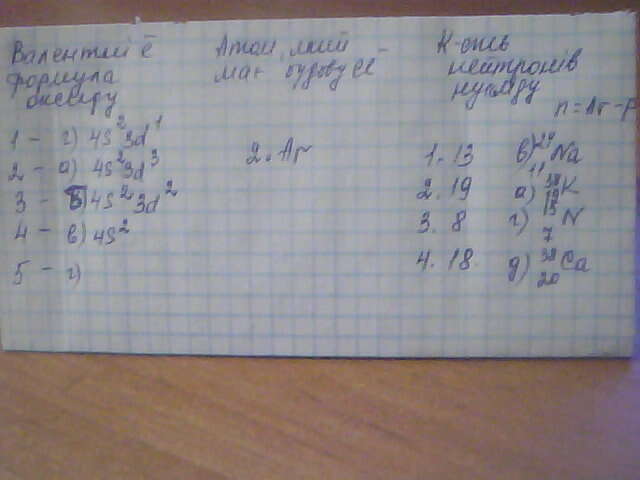 Валентні ē
формула
оксиду
1 - г) 4s² 3d¹
2 - а) 4s² 3d³
3 - б) 4s² 3d²
4 - в) 4s²
5 - г)
Атом, який
має будову ē
2. Ar
К-сть
нейтронів
нукліду
n = Ar - p
1. 13 в) ²⁴₁₁Na
2. 19 а) ³⁸₁₉K
3. 8 г) ¹⁵₇N
4. 18 д) ³⁸₂₀Ca